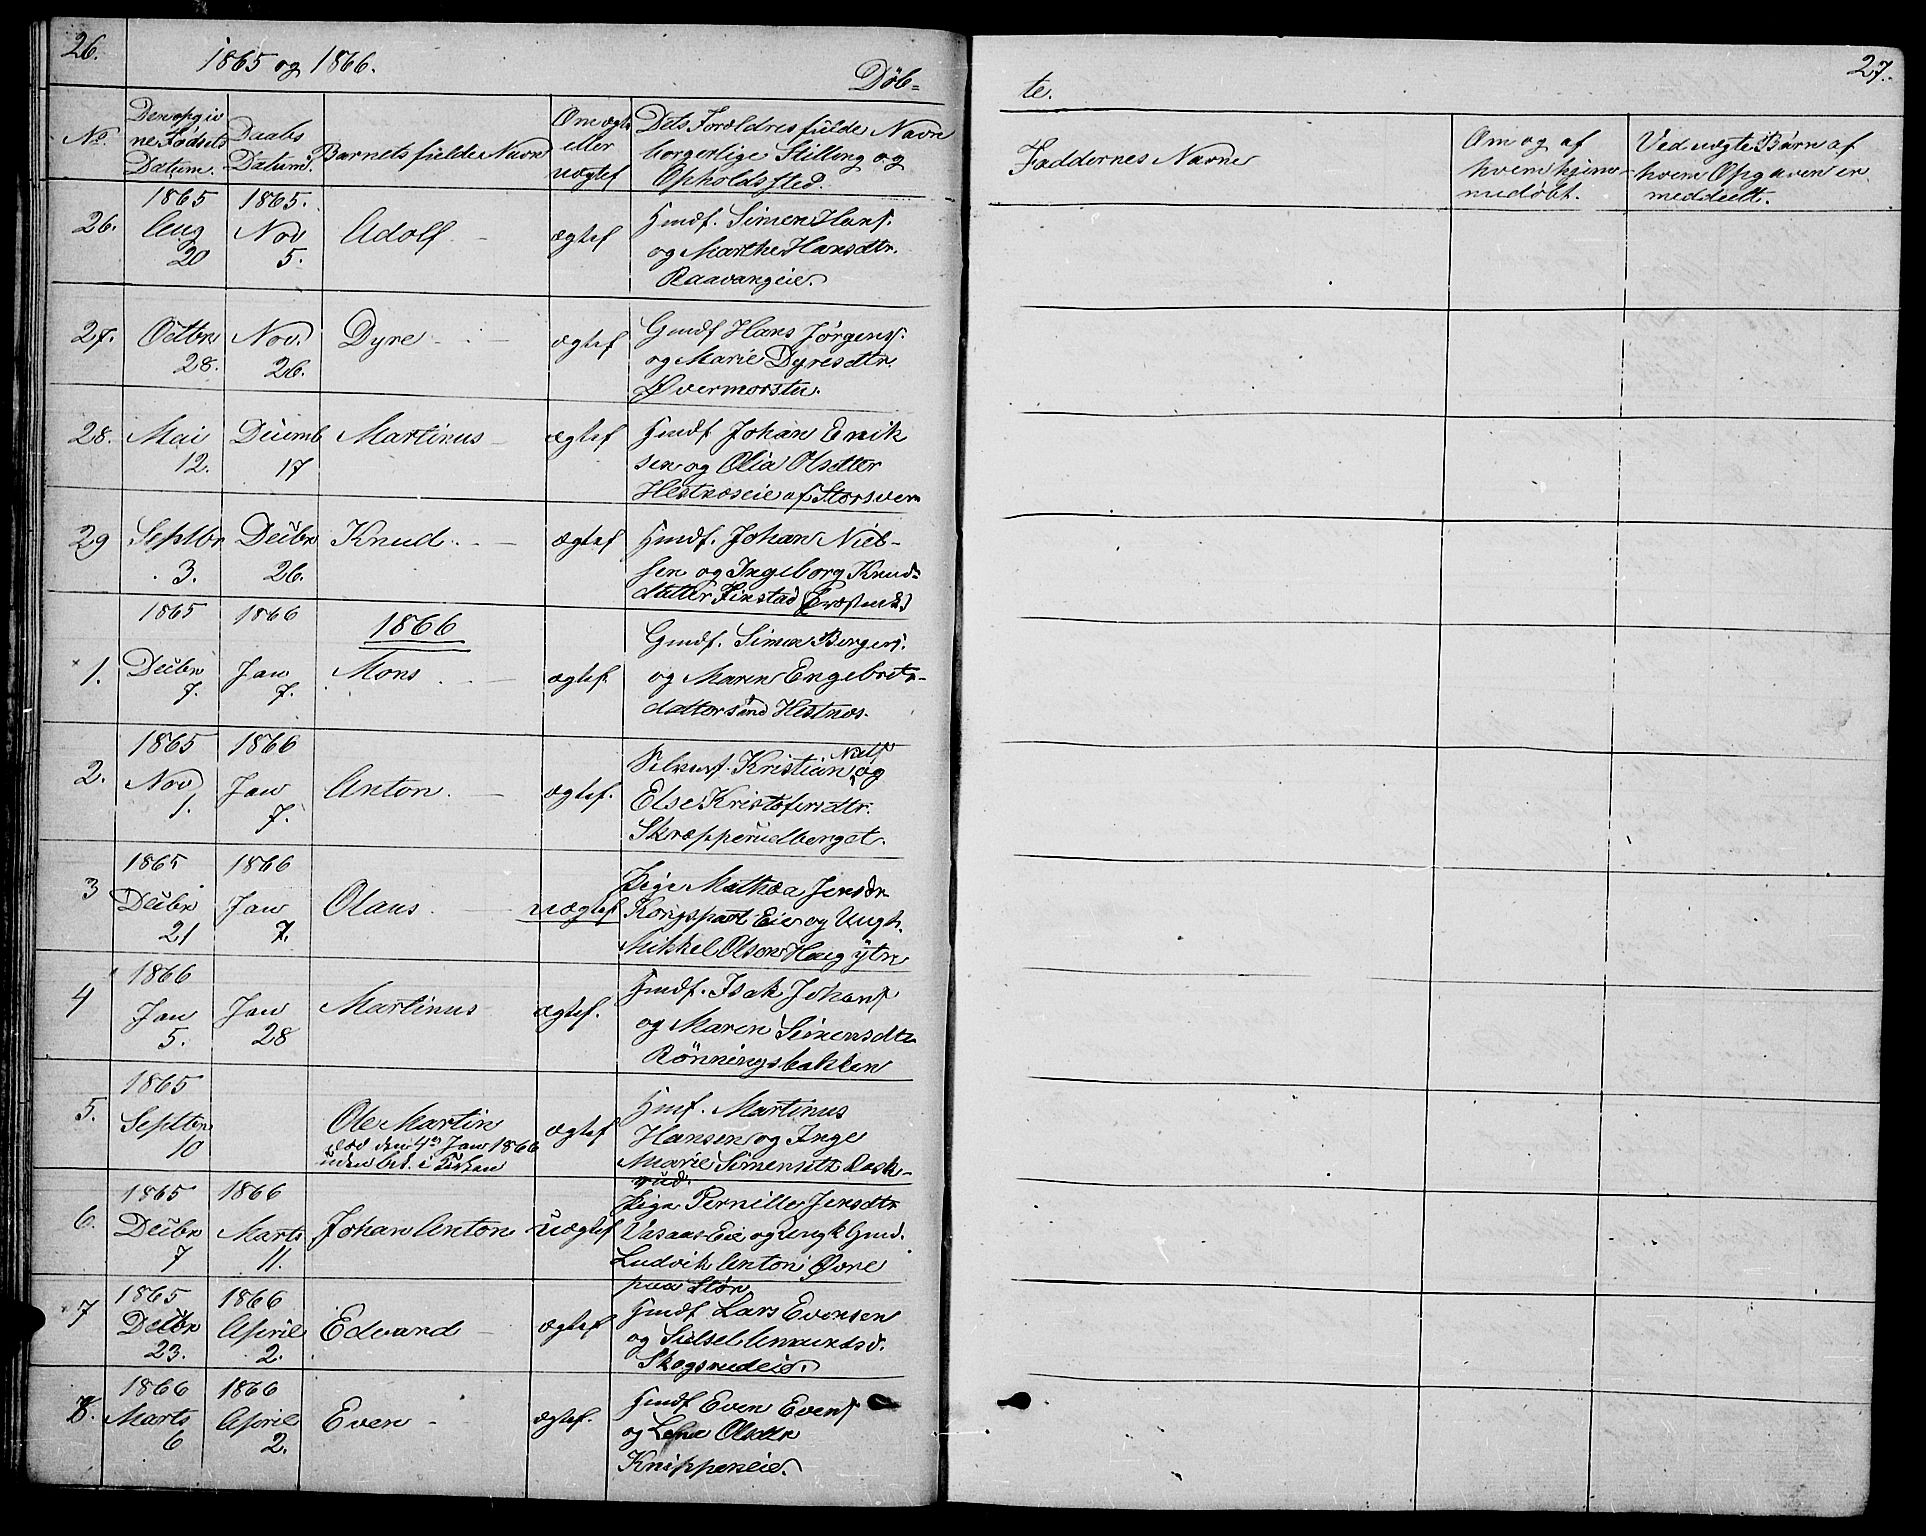 26.
1865 og 1866.
Døb=
No.
Den opgiv
ne Fødsels
Datum.
Daabs
Datum.
Barnets fulde Navn
Om ægte
eller
uægtef
Dets Forældres fulde Navn
borgerlige Stilling og
Opholdssted.
26.
1865
Aug
20
1865.
Nov
5.
Adolf
ægtef
Hmdf. Simen Hans.
og Marthe Hansdtr.
Raavangeie.
27.
Octbr
28.
Nov.
26.
Dyre
ægtef
Gmdf Hans Jørgens.
og Marie Dyresdtr.
Øvermorstu.
28.
Mai
12.
Decemb
17
Martinus
ægtef
Hmdf Johan Erik
sen og Olia Olsdtter
Hestnæseie af Storsveen
29
Septbr
3.
Decbr
26.
Knud
ægtef
Hmdf. Johan Niel-
sen og Ingeborg Knuds
datter Finstad
1866
1.
1865
Decbr
7.
1866
Jan
7.
Mons
ægtef.
Gmdf. Simen Bergers.
og Maren Engebrets-
datter Hestnæs.
2.
1865
Nov
1.
1866
Jan
7.
Anton
ægtef.
Selveif. Kristian Niels og
Else Kristofersdtr.
Skræpperudberget.
3
1865
Decbr
21
1866
Jan
7.
Olaus
uægtef
Pige Mathea Jensdr
Kongspart Eie og Ungk.
Mikkel Olsen Haug ytre
4
1866
Jan
5.
Jan
28
Martinus
ægtef.
Hmdf. Isak Johans
og Maren Simensdtr
Rönningsbakken
5.
1865
Septbr
10
Ole Martin
død den 4de Jan 1866
uden bek. i Kirken
ægtef
Hmf. Martinus
Hansen og Inge
Marie Simensdtr Rask-
rud.
6.
1865
Decbr
7
1866
Marts
11.
Johan Anton
uægtef
Pige Pernille Jensdtr
Vasaas Eie og Ungk Gmd.
Ludvik Anton Øvre
paa Stør
7
1865
Decbr
23.
1866
April
2.
Edvard
ægtef
Hmdf Lars Evensen
og Sidsel Amundsd.
Skogsrudeie.
8.
1866
Marts
6
1866
April
2.
Even
ægtef.
Hmdf Even Evens
og Lene Olsdtr
Knipperseie.
27.
te.
Faddernes Navne
Om og af
hvem hjem-
medøbt.
Ved uægte Børn af
hvem Opgaven er
meddeelt.